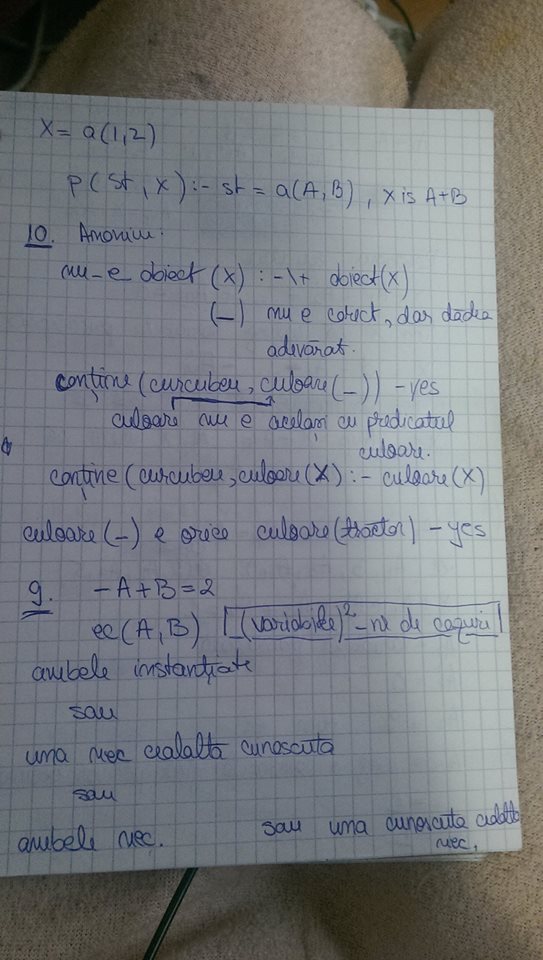 X = a(1,2)
p(St, X) :- St = a(A,B), X is A+B
10. Anonim:
nu-e obiect (X) :-\+ obiect(X)
(_) nu e corect, dar dădea
adevărat.
conține (curcubeu, culoare(_)) - yes
culoare nu e același cu predicatul
culoare.
conține (curcubeu, culoare(X) :- culoare(X)
culoare(_) e orice culoare(tractor) - yes
9. -A+B=2
ec(A,B) (variabile)² - nr de cazuri
ambele instanțiate
sau
una nec cealaltă cunoscută
sau
ambele nec. sau una cunoscută cealaltă
nec.